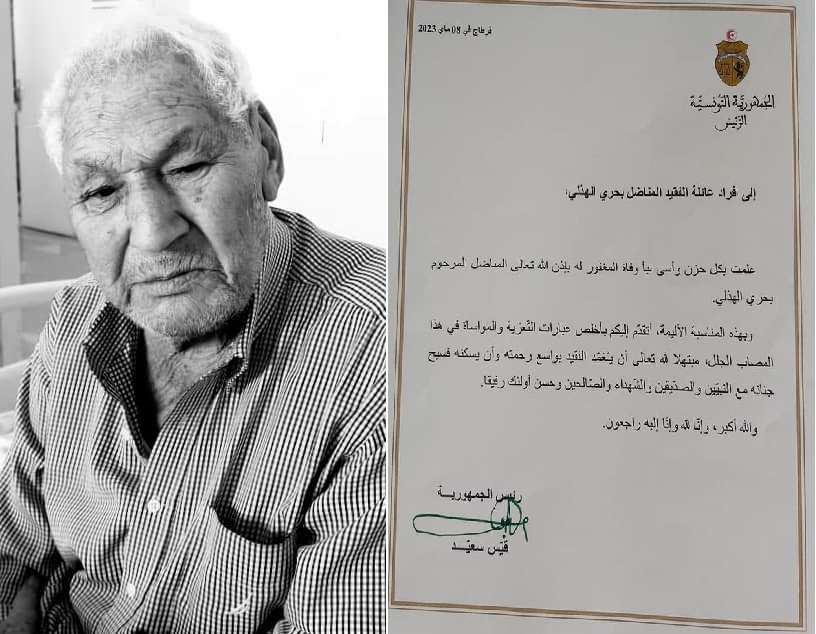 قرطاج في 08 ماي 2023
الجمهورية التونسية
الرئيس
إلى فراد عائلة الفقيد المناضل بحري الهذلي،
علمت بكل حزن وأسى نبأ وفاة المغفور له بإذن الله تعالى المناضل لمرحوم
بحري الهذلي.
وبهذه المناسبة الأليمة، أتقدّم إليكم بأخلص عبارات التّعزية والمواساة في هذا
المصاب الجلل، مبتهلا لله تعالى أن يتغمّد الفقيد بواسع رحمته وأن يسكنه فسيح
جنانه مع النبيّين والصدّيقين والشّهداء والصّالحين وحسن أولئك رفيقا.
والله أكبر، وإنّا لله وإنّا إليه راجعون.
رئيس الجمهوريـــة
قيّس سعيّـد